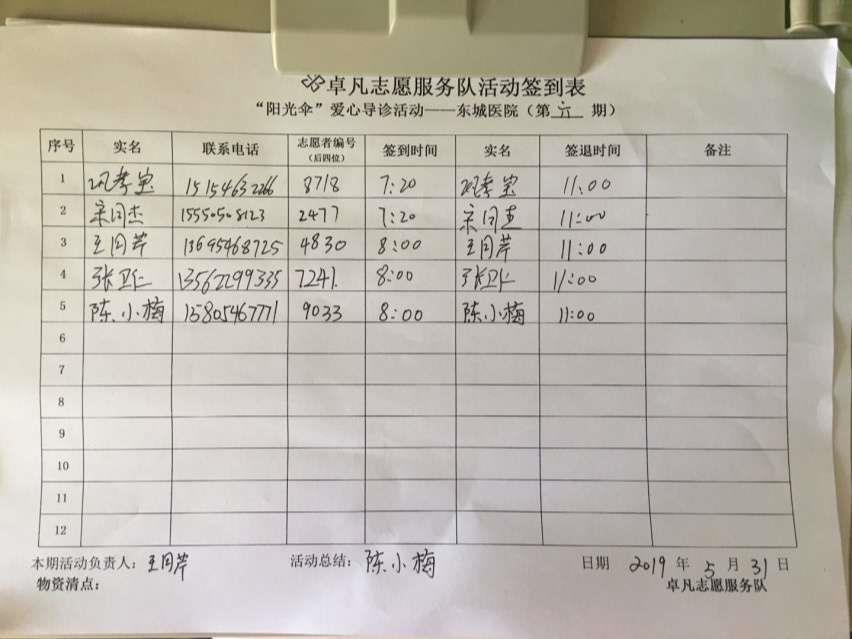 卓凡志愿服务队活动签到表
“阳光伞”爱心导诊活动——东城医院（第 六 期）
序号 实名 联系电话 志愿者编号（后四位） 签到时间 实名 签退时间 备注
1 孝宝 15154632266 8718 7:20 孝宝 11:00
2 宋同杰 15550508123 2477 7:20 宋同杰 11:00
3 王同芹 13695468725 4830 8:00 王同芹 11:00
4 张卫仁 13562299335 7241 8:00 张卫仁 11:00
5 陈小梅 15805467771 9033 8:00 陈小梅 11:00
6
7
8
9
10
11
12
本期活动负责人：王同芹 活动总结：陈小梅 日期 2019 年 5 月 31 日
物资清点： 卓凡志愿服务队